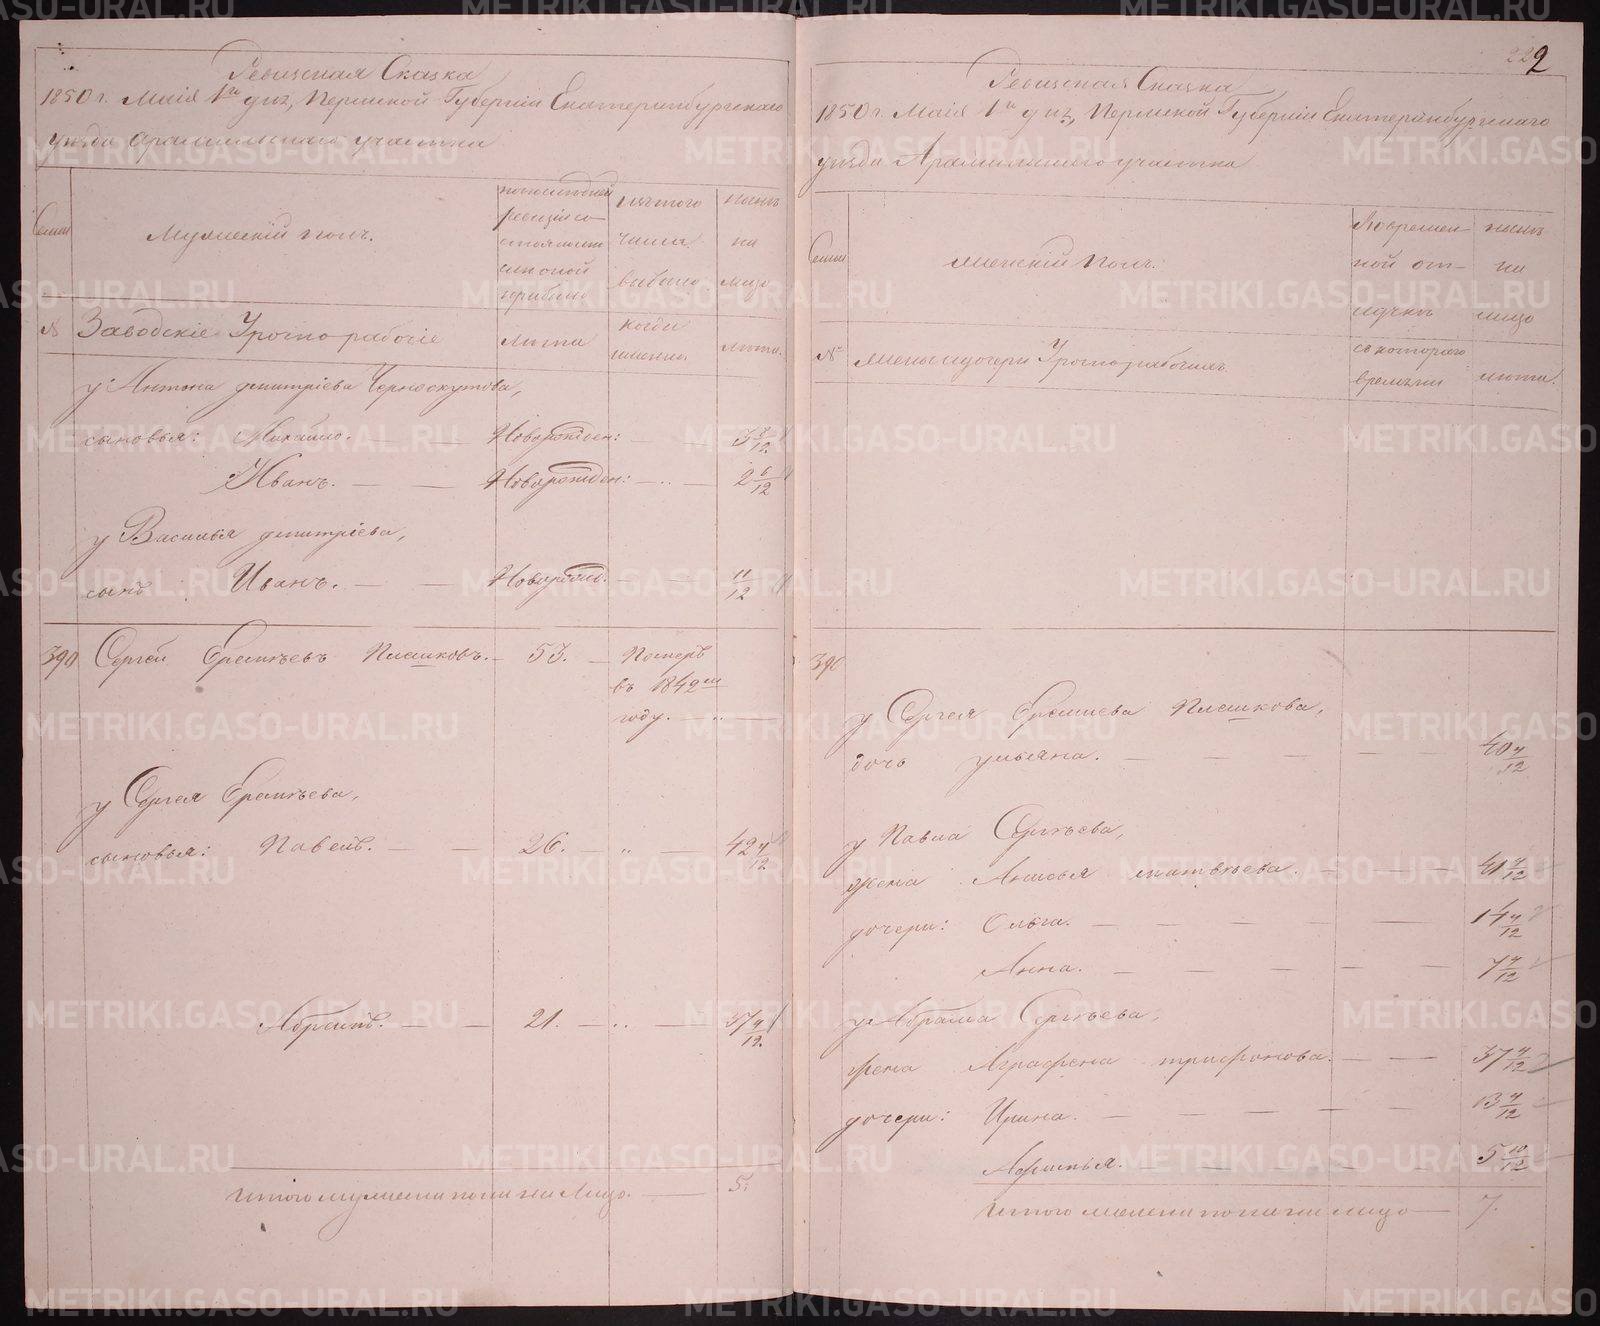 Ревизская Сказка
1850 г. Маія 1го дня, Пермской Губерніи Екатеринбургскаго
уезда Арамильскаго участка
Семьи
Мужескій полъ.
по последней ревизіи состояло и после оной прибыло
изъ того числа выбыло
ныне на лицо
№
Заводскіе Урочно рабочіе
лета
когда именно.
лета.
у Антона Дмитріева Черноскутова,
сыновья: Михайло. — — Новорожден: — 3 8/12
Иванъ. — — Новорожден: — 2 6/12
у Василья Дмитріева,
сынъ Иванъ. — — Новорожд. — — 11/12
390 Сергей Еремеевъ Плешковъ. — 53. — Померъ
въ 1842м
году. — „ —
у Сергея Еремеева,
сыновья: Павелъ. — — 26. — „ — 42 4/12
Абрамъ. — — 21. — „ — 37 4/12.
Итого мужеска пола на Лицо. — 5.
222
Ревизская Сказка
1850 г. Маія 1го дня, Пермской Губерніи Екатеринбургскаго
уезда Арамильскаго участка
Семьи
Женскій полъ.
Во временной отлучке
ныне на лицо
№
Жены и дочери Урочнорабочихъ
съ котораго времени
лета.
390
у Сергея Еремеева Плешкова,
дочь Ульяна. — — — — 40 4/12
у Павла Сергеева,
жена Анисья Матвеева. — — — 41 4/12
дочери: Ольга. — — — — 14 4/12
Анна. — — — — 7 4/12
у Абрама Сергеева,
жена Аграфена Трифонова. — — — 37 4/12
дочери: Ирина. — — — — 13 4/12
Афимья. — — — — 5 10/12
Итого женска пола на лицо — 7.
METRIKI.GASO-URAL.RU